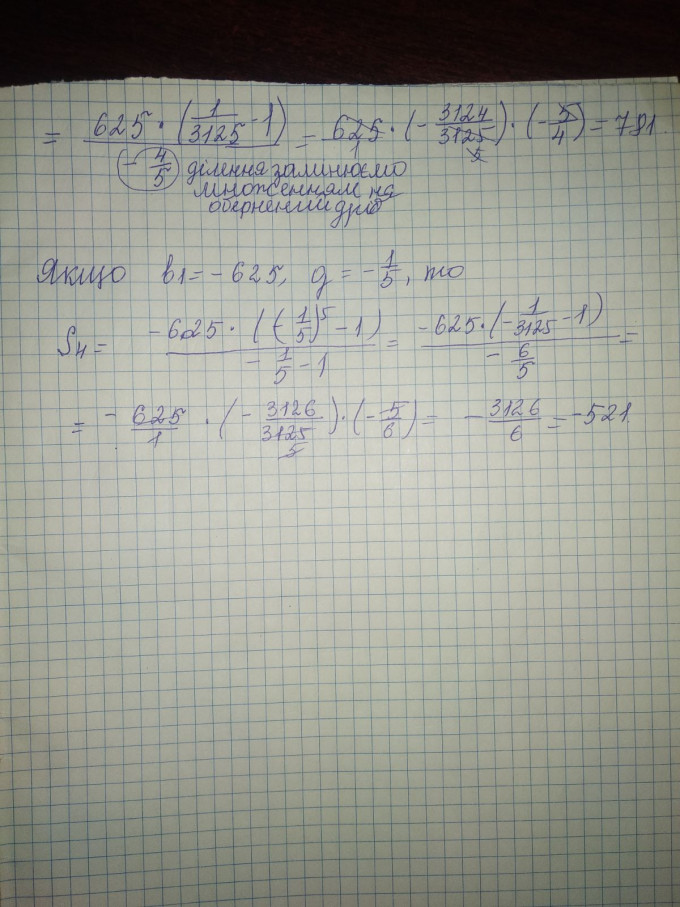 = 625 · (1/3125 - 1) / (- 4/5) = 625/1 · (- 3124/3125) · (- 5/4) = 781.
ділення замінюємо
множенням на
обернений дріб
Якщо b1 = - 625, q = - 1/5, то
S4 = -625 · ((- 1/5)^5 - 1) / (- 1/5 - 1) = -625 · (- 1/3125 - 1) / (- 6/5) =
= - 625/1 · (- 3126/3125) · (- 5/6) = - 3126/6 = -521.